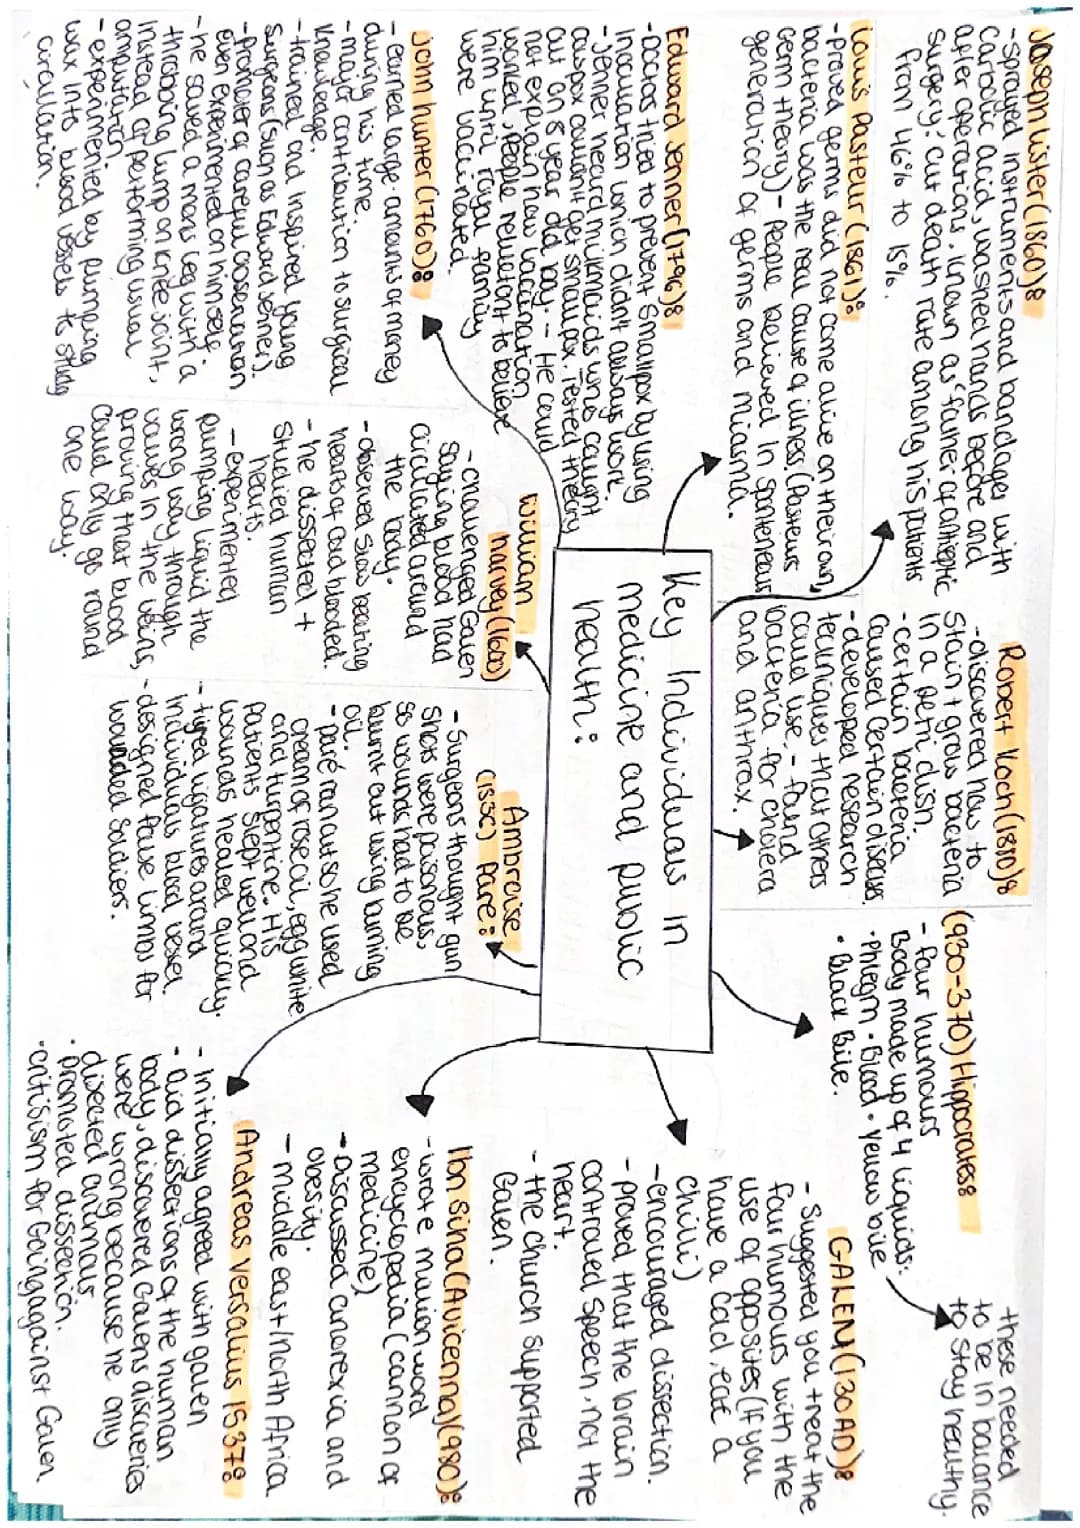 Joseph Lister (1860):
- sprayed instruments and bandages with
carbolic acid, washed hands before and
after operations. Known as 'father of antiseptic
surgery': cut death rate among his patients
from 46% to 15%.
Louis Pasteur (1861):
- Proved germs did not come alive on their own,
bacteria was the real cause of illness. (Pasteurs
germ theory) - People believed in sponteneous
generation of germs and miasma.
Edward Jenner (1796):
- Doctors tried to prevent smallpox by using
inoculation which didn't always work.
- Jenner heard milkmaids who caught
cowpox couldn't get smallpox, tested theory
out on 8 year old boy. - He could
not explain how vaccination
worked, people reluctant to believe
him until royal family
were vaccinated.
John hunter (1760):
- earned large amounts of money
during his time.
- major contribution to surgical
knowledge.
- trained and inspired young
surgeons (such as Edward Jenner).
- Promoter of careful observation
even experimented on himself.
- he saved a mans leg with a
throbbing lump on knee joint,
instead of performing usual
amputation.
- experimented by pumping
wax into blood vessels to study
circulation.
William
harvey (1600)
- challenged Galen
saying blood had
circulated around
the body.
- observed slow beating
hearts of cold blooded.
- he dissected +
studied human
hearts.
- experimented
pumping liquid the
wrong way through
valves in the veins,
proving that blood
could only go round
one way.
Key Individuals in
medicine and public
health:
Robert Koch (1880):
- discovered how to
stain + grow bacteria
in a petri dish.
- certain bacteria
caused certain diseases.
- developed research
techniques that others
could use. - found
bacteria for cholera
and anthrax.
Ambroise
Paré:
- Surgeons thought gun
shots were poisonous,
so wounds had to be
burnt out using burning
oil.
- paré ran out so he used
cream of rose oil, egg white
and turpentine. His
patients slept well and
wounds healed quickly.
- tyed ligatures around
individual blood vessel.
- designed false limbs for
wounded soldiers.
Hippocrates:
- four humours
Body made up of 4 liquids:
• Phlegm • Blood • Yellow bile
• Black Bile.
these needed
to be in balance
to stay healthy.
GALEN (130AD):
- Suggested you treat the
four humours with the
use of opposites (if you
have a cold, eat a
chilli)
- encouraged dissection.
- proved that the brain
controlled speech, not the
heart.
- the church supported
Galen.
Ibn Sina (Avicenna) (980):
- wrote million word
encyclopedia (cannon of
medicine)
- Discussed anorexia and
obesity.
- middle east/North Africa
Andreas Versalius 1537:
- Initially agreed with galen
- did dissections of the human
body, discovered Galens discoveries
were wrong because he only
disected animals
• promoted dissection.
• critisism for Going against Galen